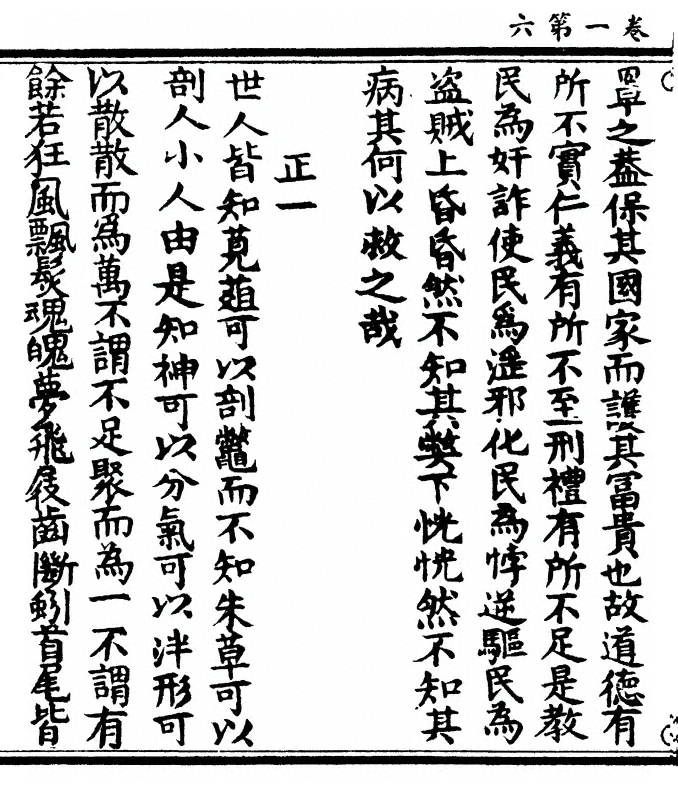 卷一第六
罩之蓋保其國家而護其冨貴也故道德有
所不實仁義有所不至刑禮有所不足是教
民為奸詐使民為滛邪化民為悖逆驅民為
盜賊上昏昏然不知其獘下恍恍然不知其
病其何以救之哉
正一
世人皆知莧蒩可以剖鼈而不知朱草可以
剖人小人由是知神可以分氣可以泮形可
以散散而為萬不謂不足聚而為一不謂有
餘若狂風飄髮魂魄夢飛屐齒斷蚓首尾皆